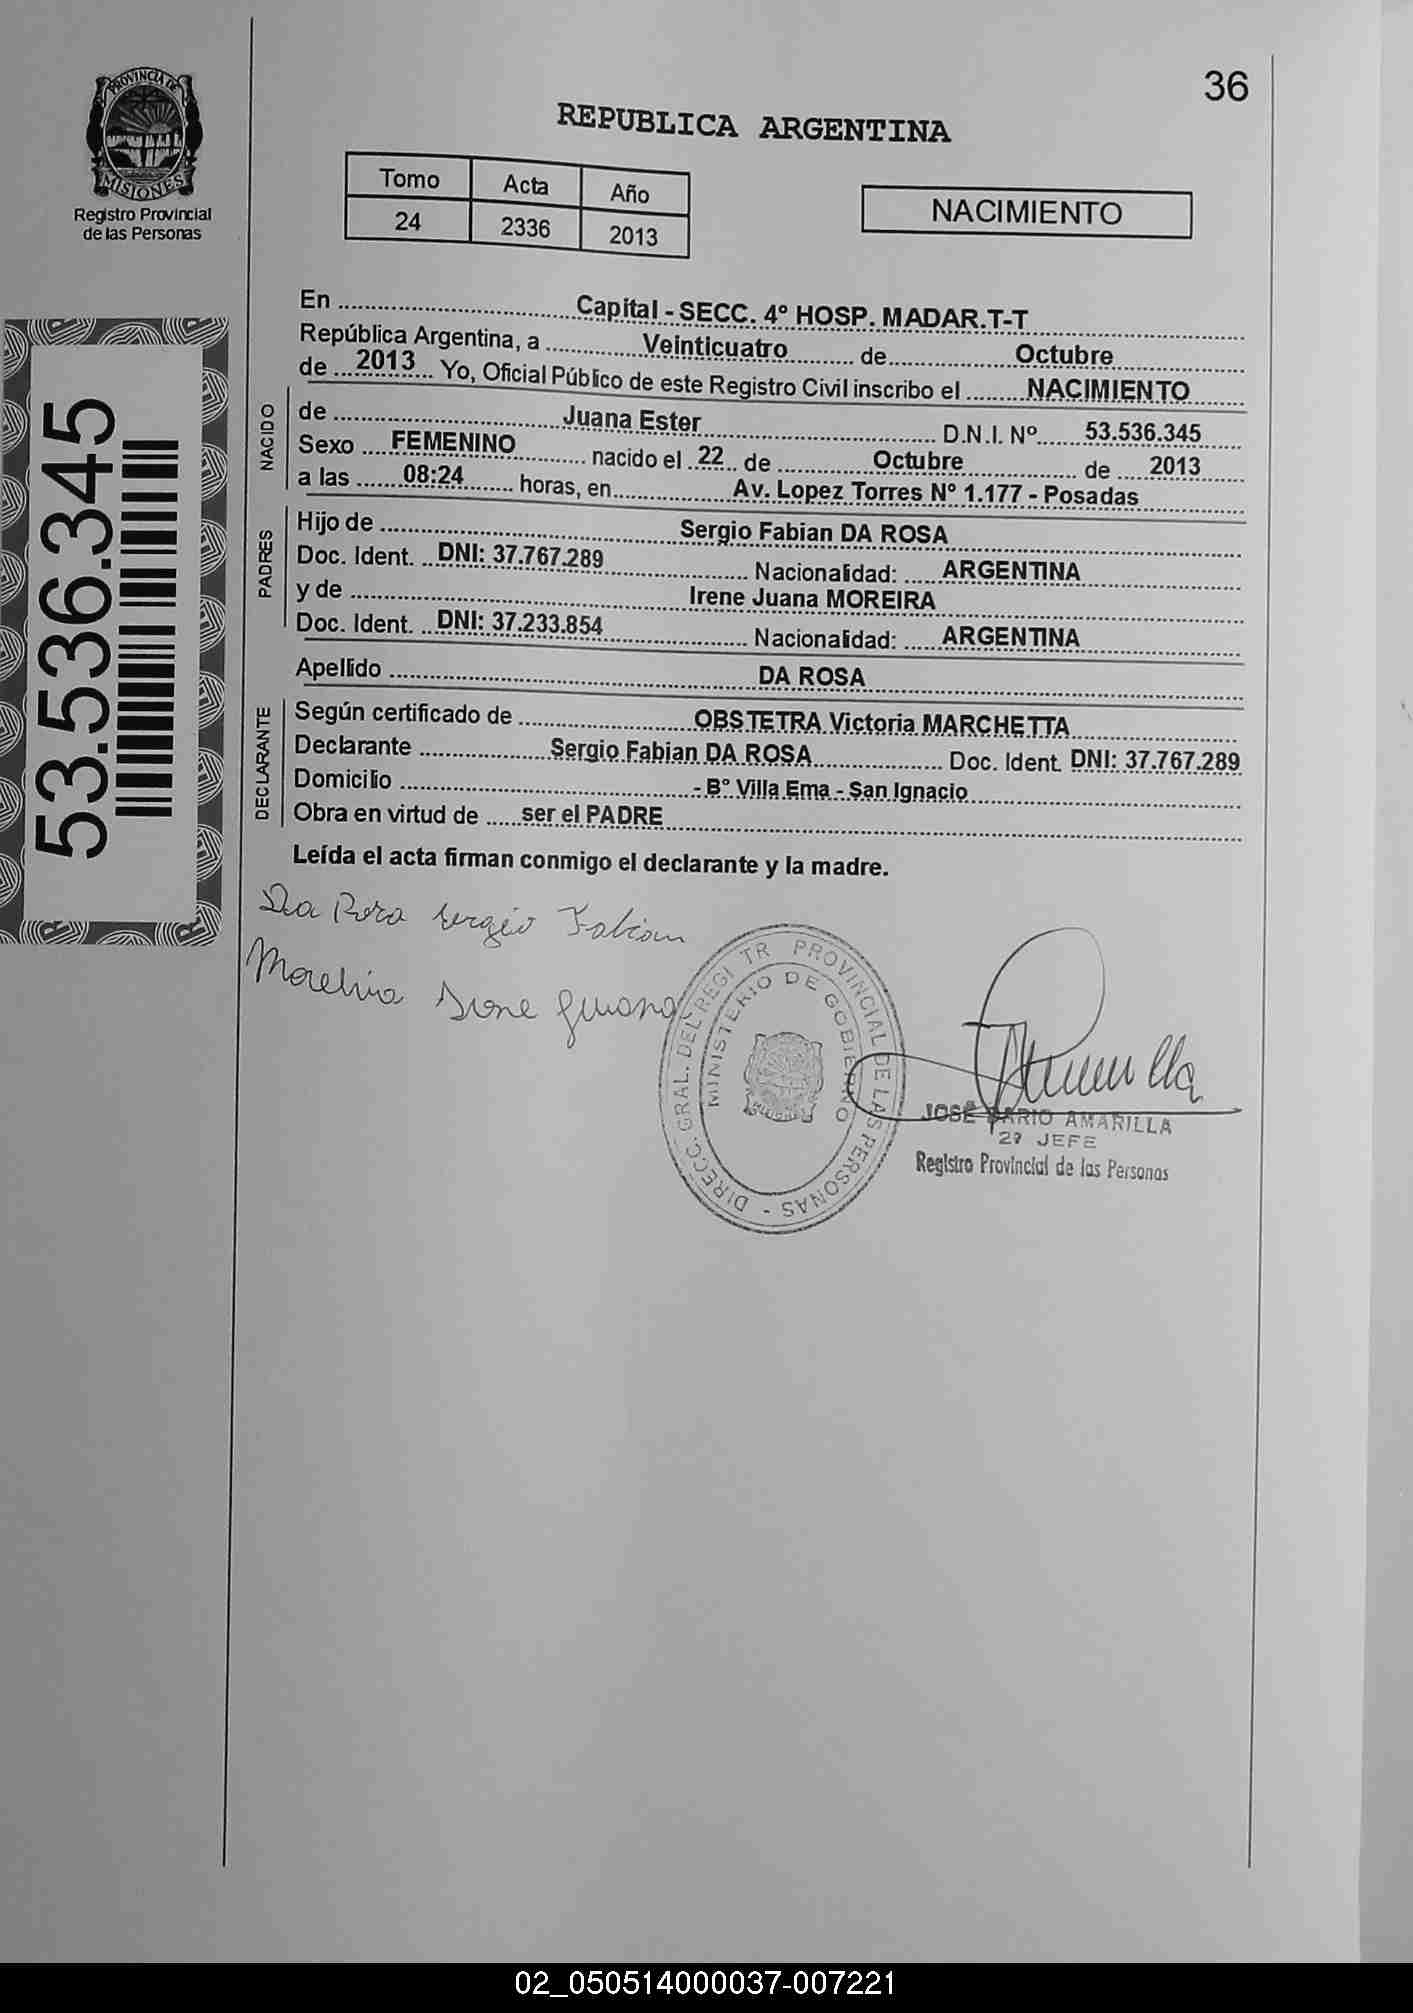 36
PROVINCIA DE
MISIONES
Registro Provincial
de las Personas
REPUBLICA ARGENTINA
Tomo Acta Año
24 2336 2013
NACIMIENTO
53.536.345
En Capital - SECC. 4º HOSP. MADAR.T-T
República Argentina, a Veinticuatro de Octubre
de 2013 Yo, Oficial Público de este Registro Civil inscribo el NACIMIENTO
NACIDO
de Juana Ester D.N.I. Nº 53.536.345
Sexo FEMENINO nacido el 22 de Octubre de 2013
a las 08:24 horas, en Av. Lopez Torres Nº 1.177 - Posadas
PADRES
Hijo de Sergio Fabian DA ROSA
Doc. Ident. DNI: 37.767.289 Nacionalidad: ARGENTINA
y de Irene Juana MOREIRA
Doc. Ident. DNI: 37.233.854 Nacionalidad: ARGENTINA
Apellido DA ROSA
DECLARANTE
Según certificado de OBSTETRA Victoria MARCHETTA
Declarante Sergio Fabian DA ROSA Doc. Ident. DNI: 37.767.289
Domicilio - Bº Villa Ema - San Ignacio
Obra en virtud de ser el PADRE
Leída el acta firman conmigo el declarante y la madre.
Da Rosa Sergio Fabian
Moreira Irene Juana
DIRECC. GRAL. DEL REGI TR PROVINCIAL DE LAS PERSONAS -
MINISTERIO DE GOBIERNO
MISIONES
JOSÉ DARIO AMARILLA
2º JEFE
Registro Provincial de las Personas
02_050514000037-007221